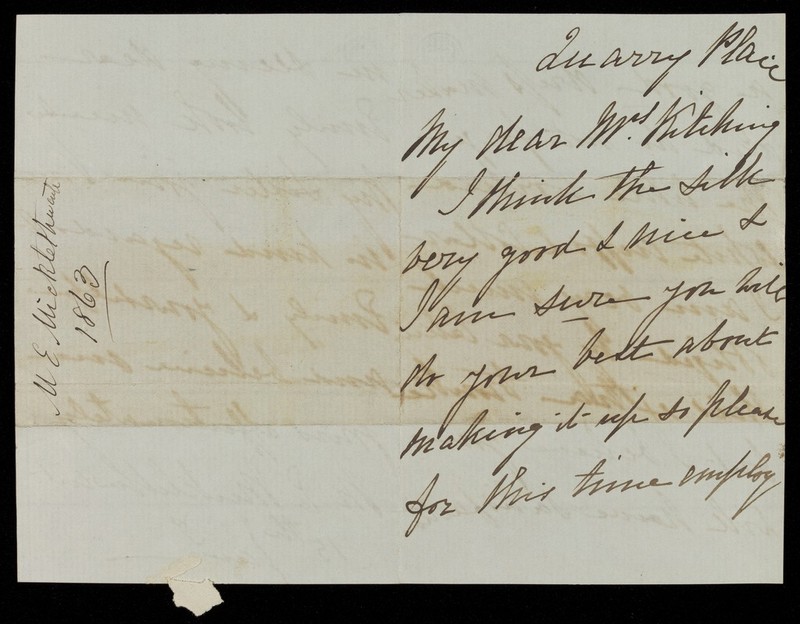 Quarry Place
My dear Mrs. Kitching
I think the silk
very good & nice &
I am sure you will
do your best about
making it up so please
for this time employ
M E Micklethwaite
1863